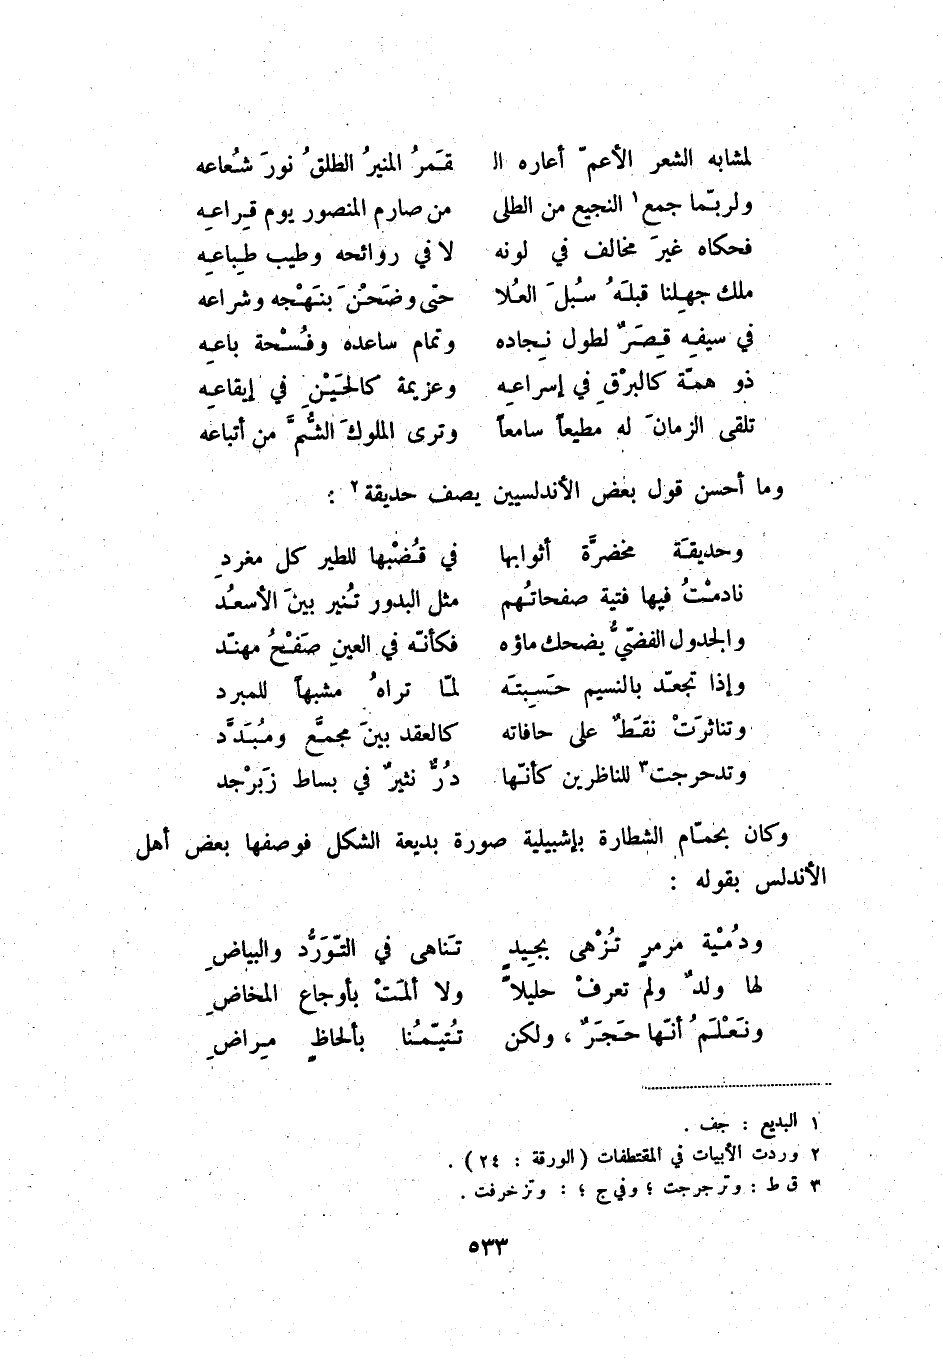 لمشابه الشعر الأعمّ أعاره ال قَمرُ المنيرُ الطلقُ نورَ شُعاعه
ولربّما جمع١ النجيع من الطلى من صارم المنصور يوم قِراعِه
فحكاه غيرَ مخالف في لونه لا في روائحه وطيب طِباعِه
ملك جهِلنا قبلَهُ سُبلَ العُلا حتّى وضَحْنَ بنَهْجه وشراعه
في سيفِه قِصَرٌ لطول نِجاده وتمام ساعده وفُسْحة باعِه
ذو همّة كالبرْقِ في إسراعِه وعزيمة كالحَيْنِ في إيقاعِه
تلقى الزمانَ له مطيعاً سامعاً وترى الملوكَ الشُّمَّ من أتباعه
وما أحسن قول بعض الأندلسيين يصف حديقة٢ :
وحديقَة مخضرَّة أثوابها في قُضْبها للطير كل مغردِ
نادمْتُ فيها فتية صفحاتُهم مثل البدور تُنير بينَ الأسعُد
والجدول الفضّيُّ يضحك ماؤه فكأنّه في العينِ صَفْحُ مهنّد
وإذا تجعّد بالنسيم حَسِبتَه لمّا تراهُ مشبهاً للمبرد
وتناثرَتْ نقَطٌ على حافاته كالعقد بينَ مجمَّع ومُبَدَّد
وتدحرجت٣ للناظرين كأنّها دُرٌّ نثيرٌ في بساط زَبَرْجد
وكان بحمّام الشطارة بإشبيلية صورة بديعة الشكل فوصفها بعض أهل
الأندلس بقوله :
ودُمْية مرمرٍ تُزْهى بجِيدٍ تَناهى في التّوَرُّد والبياضِ
لها ولدٌ ولم تعرفْ حليلاً ولا ألمَتْ بأوجاع المخاضِ
ونَعْلَمُ أنّها حَجَرٌ ، ولكن تُتَيّمُنا بألحاظٍ مِراضِ
١ البديع : جف .
٢ وردت الأبيات في المقتطفات (الورقة : ٢٤) .
٣ ق ط : وترجرجت ؛ وفي ج ؛ : وتزخرفت .
٥٣٣